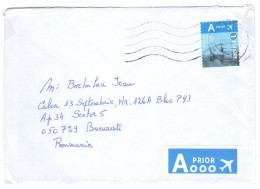 A PRIOR
M: Bochitau Ioan
Calea 13 Septembrie, Nr. 126A Bloc P43
Ap 34 Sector 5
050729 Bucuresti
Roumanie
A PRIOR